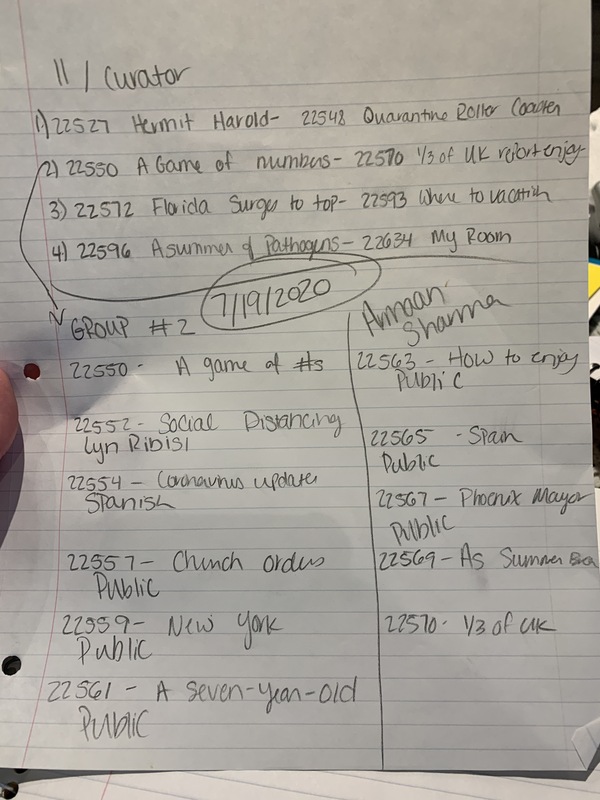 11 / Curator
1) 22527 Hermit Harold- 22548 Quarantine Roller Coaster
2) 22550 A Game of numbers- 22570 1/3 of UK report enjoy
3) 22572 Florida Surges to top- 22593 Where to vacation
4) 22596 A summer of Pathogens- 22634 My Room
7/19/2020
GROUP #2
22550- A game of #s
22552- Social Distancing
Lyn Ribisi
22554- Coronavirus update
Spanish
22557- Church orders
Public
22559- New York
Public
22561- A seven-year-old
Public
Armaan
Sharma
22563- How to enjoy
Public
22565 -Spain
Public
22567- Phoenix Mayor
Public
22569- As Summer
22570- 1/3 of UK